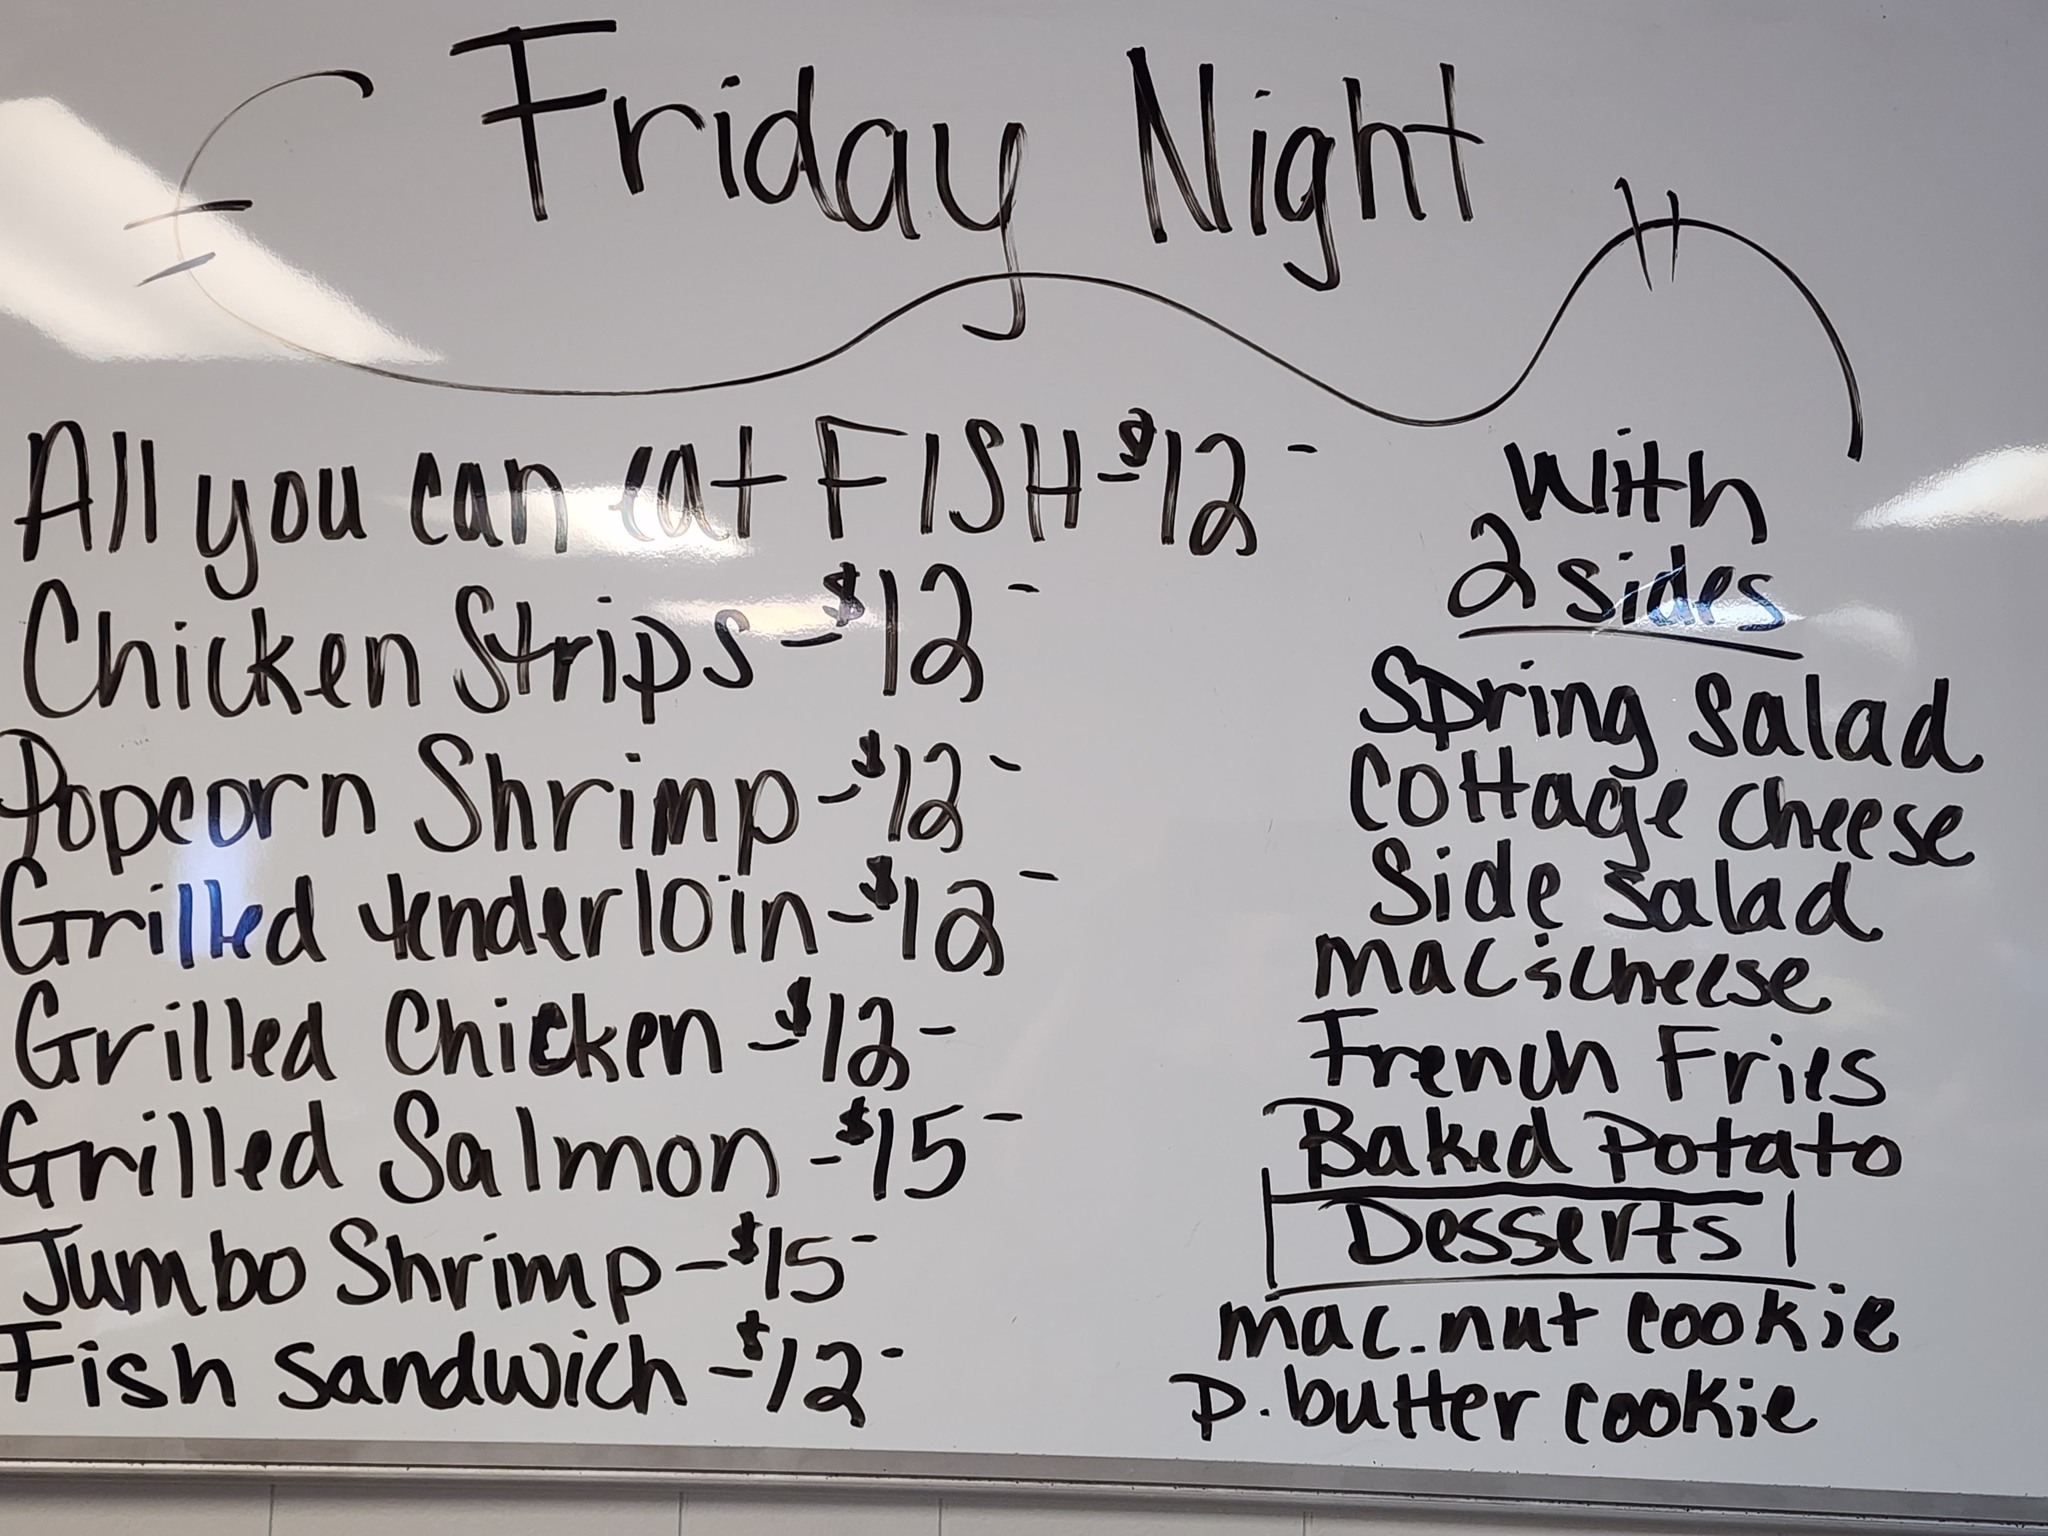 Friday Night
All you can eat FISH - $12 -
Chicken Strips - $12 -
Popcorn Shrimp - $12 -
Grilled tenderloin - $12 -
Grilled Chicken - $12 -
Grilled Salmon - $15 -
Jumbo Shrimp - $15 -
Fish Sandwich - $12 -
With
2 sides
Spring Salad
Cottage Cheese
Side Salad
mac & cheese
French Fries
Baked Potato
Desserts
mac. nut cookie
P. butter cookie